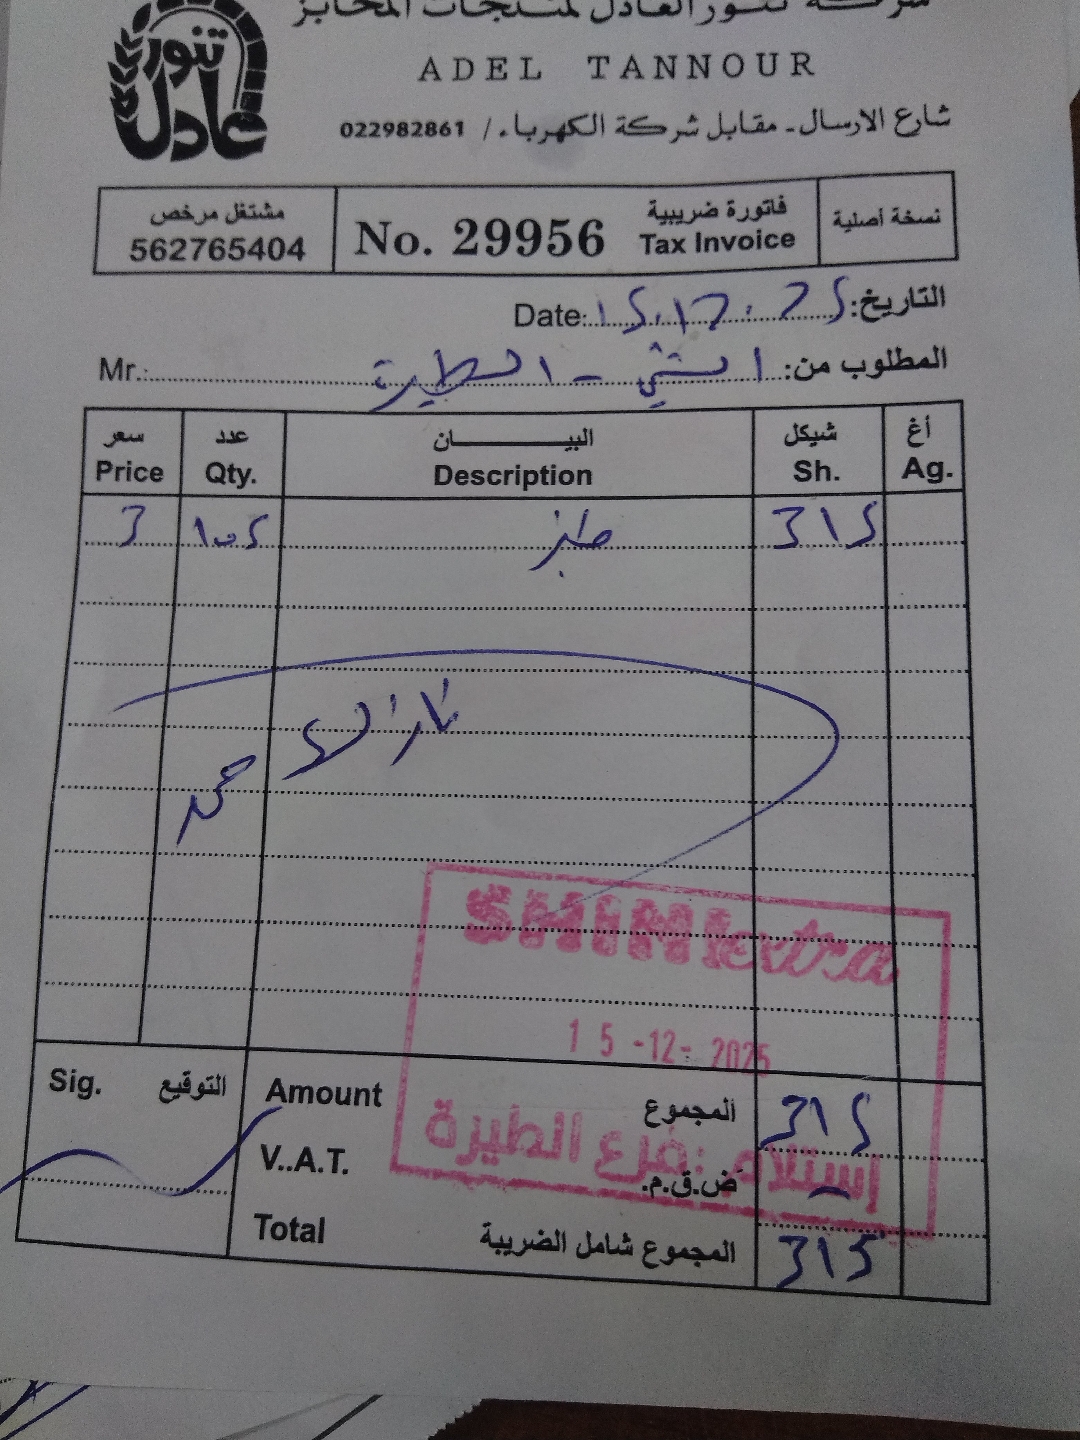 شركة تنور العادل لمنتجات المخابز
تنور عادل
ADEL TANNOUR
شارع الارسال - مقابل شركة الكهرباء / 022982861
نسخة أصلية
فاتورة ضريبية
Tax Invoice
No. 29956
مشتغل مرخص
562765404
التاريخ: 15.12.25 Date:
المطلوب من: الشني - الطيرة Mr.
سعر عدد البيان شيكل أغ
Price Qty. Description Sh. Ag.
3 105 خبز 315
SHINI extra
15-12-2025
إستلام: فرع الطيرة
Sig. التوقيع
Amount المجموع 315
V..A.T. ض.ق.م. -
Total المجموع شامل الضريبة 315